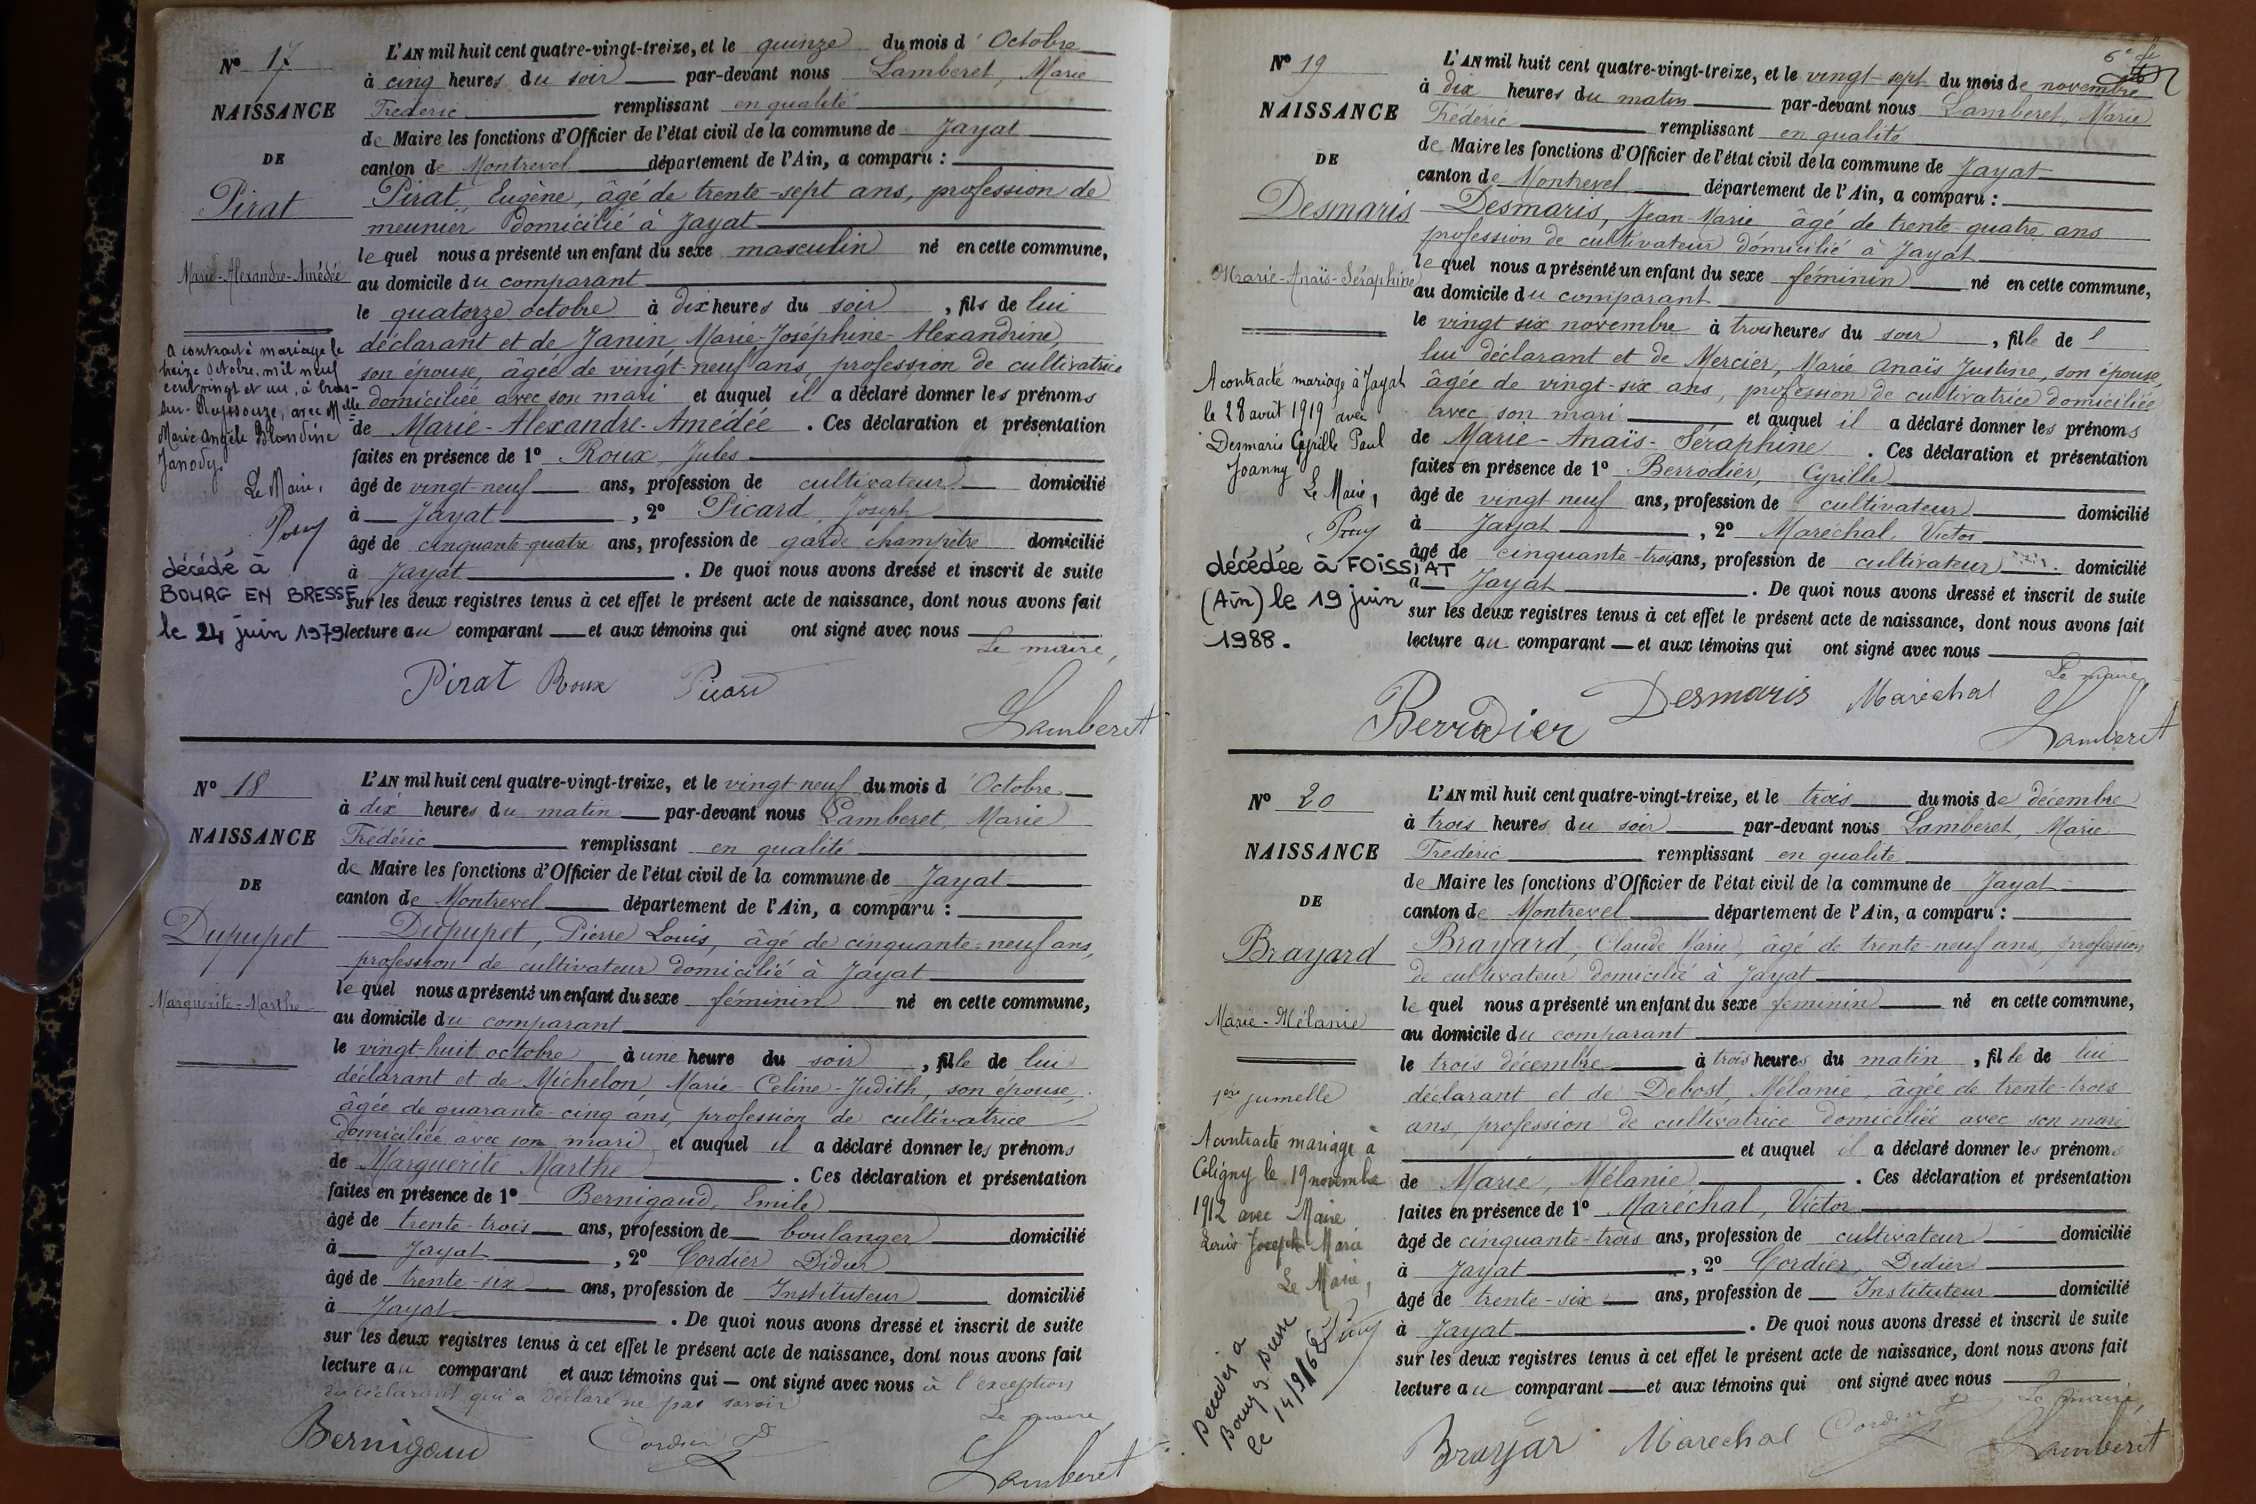 N° 17
NAISSANCE
DE
Pirat
Marie-Alexandre-Amédée
a contracté mariage le
treize Octobre, mil neuf
cent vingt et un, à Cras-
sur-Reyssouze, avec Melle
Marie Angèle Blandine
Janody.
Le Maire,
décédé à
BOURG EN BRESSE
le 24 juin 1979
L'AN mil huit cent quatre-vingt-treize, et le quinze du mois d'Octobre
à cinq heures du soir par-devant nous Lamberet, Marie
Frédéric remplissant en qualité
de Maire les fonctions d'Officier de l'état civil de la commune de Jayat
canton de Montrevel département de l'Ain, a comparu :
Pirat, Eugène, âgé de trente-sept ans, profession de
meunier domicilié à Jayat
lequel nous a présenté un enfant du sexe masculin né en cette commune,
au domicile du comparant
le quatorze octobre à dix heures du soir, fils de lui
déclarant et de Janin Marie-Joséphine-Alexandrine,
son épouse, âgée de vingt-neuf ans, profession de cultivatrice
domiciliée avec son mari et auquel il a déclaré donner les prénoms
de Marie-Alexandre-Amédée. Ces déclaration et présentation
faites en présence de 1° Roux, Jules
âgé de vingt-neuf ans, profession de cultivateur domicilié
à Jayat, 2° Picard, Joseph
âgé de cinquante-quatre ans, profession de garde champêtre domicilié
à Jayat. De quoi nous avons dressé et inscrit de suite
sur les deux registres tenus à cet effet le présent acte de naissance, dont nous avons fait
lecture au comparant et aux témoins qui ont signé avec nous
Le maire,
Pirat Roux Picard
Lamberet
N° 18
NAISSANCE
DE
Dupupet
Marguerite-Marthe
L'AN mil huit cent quatre-vingt-treize, et le vingt neuf du mois d'Octobre
à dix heures du matin par-devant nous Lamberet, Marie
Frédéric remplissant en qualité
de Maire les fonctions d'Officier de l'état civil de la commune de Jayat
canton de Montrevel département de l'Ain, a comparu :
Dupupet, Pierre Louis, âgé de cinquante-neuf ans,
profession de cultivateur domicilié à Jayat
lequel nous a présenté un enfant du sexe féminin né en cette commune,
au domicile du comparant
le vingt-huit octobre à une heure du soir, fille de lui
déclarant et de Michelon, Marie-Celine-Judith, son épouse,
âgée de quarante-cinq ans, profession de cultivatrice
domiciliée avec son mari et auquel il a déclaré donner les prénoms
de Marguerite Marthe. Ces déclaration et présentation
faites en présence de 1° Bernigaud, Emile
âgé de trente-trois ans, profession de boulanger domicilié
à Jayat, 2° Cordier Didier
âgé de trente-six ans, profession de Instituteur domicilié
à Jayat. De quoi nous avons dressé et inscrit de suite
sur les deux registres tenus à cet effet le présent acte de naissance, dont nous avons fait
lecture au comparant et aux témoins qui — ont signé avec nous à l'exception
du déclarant qui a déclaré ne pas savoir
Le maire,
Bernigaud Cordier D
Lamberet
N° 19
NAISSANCE
DE
Desmaris
Marie-Anaïs-Séraphine
A contracté mariage à Jayat
le 28 avril 1919 avec
Desmaris Cyrille Paul
Joanny
Le Maire,
décédée à FOISSIAT
(Ain) le 19 juin
1988.
L'AN mil huit cent quatre-vingt-treize, et le vingt-sept du mois de novembre
à dix heures du matin par-devant nous Lamberet, Marie
Frédéric remplissant en qualité
de Maire les fonctions d'Officier de l'état civil de la commune de Jayat
canton de Montrevel département de l'Ain, a comparu :
Desmaris, Jean-Marie âgé de trente-quatre ans
profession de cultivateur domicilié à Jayat
lequel nous a présenté un enfant du sexe féminin né en cette commune,
au domicile du comparant
le vingt six novembre à trois heures du soir, fille de l
lui déclarant et de Mercier, Marie Anaïs Justine, son épouse,
âgée de vingt-six ans, profession de cultivatrice domiciliée
avec son mari et auquel il a déclaré donner les prénoms
de Marie-Anaïs-Séraphine. Ces déclaration et présentation
faites en présence de 1° Berrodier, Cyrille
âgé de vingt neuf ans, profession de cultivateur domicilié
à Jayat, 2° Maréchal, Victor
âgé de cinquante-trois ans, profession de cultivateur domicilié
à Jayat. De quoi nous avons dressé et inscrit de suite
sur les deux registres tenus à cet effet le présent acte de naissance, dont nous avons fait
lecture au comparant — et aux témoins qui ont signé avec nous
Le maire
Berrodier Desmaris Maréchal
Lamberet
N° 20
NAISSANCE
DE
Brayard
Marie-Mélanie
1ère jumelle
A contracté mariage à
Coligny le 19 novembre
1912 avec Maire
Louis Joseph Marie
Le Maire,
Décédée à
Bourg-en-Bresse
le 14/9/62
L'AN mil huit cent quatre-vingt-treize, et le trois du mois de décembre
à trois heures du soir par-devant nous Lamberet, Marie
Frédéric remplissant en qualité
de Maire les fonctions d'Officier de l'état civil de la commune de Jayat
canton de Montrevel département de l'Ain, a comparu :
Brayard, Claude Marie, âgé de trente-neuf ans, profession
de cultivateur domicilié à Jayat
lequel nous a présenté un enfant du sexe féminin né en cette commune,
au domicile du comparant
le trois décembre à trois heures du matin, fille de lui
déclarant et de Debost, Mélanie, âgée de trente-trois
ans, profession de cultivatrice domiciliée avec son mari
et auquel il a déclaré donner les prénoms
de Marie, Mélanie. Ces déclaration et présentation
faites en présence de 1° Maréchal, Victor
âgé de cinquante-trois ans, profession de cultivateur domicilié
à Jayat, 2° Cordier, Didier
âgé de trente-six ans, profession de Instituteur domicilié
à Jayat. De quoi nous avons dressé et inscrit de suite
sur les deux registres tenus à cet effet le présent acte de naissance, dont nous avons fait
lecture au comparant — et aux témoins qui ont signé avec nous
Le maire,
Brayar Maréchal Cordier D
Lamberet